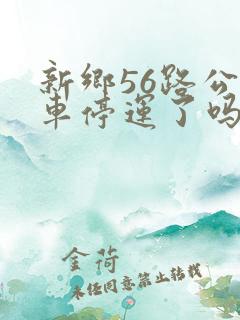 新鄉56路公
車停運了嗎
金荷
未经同意禁止转载